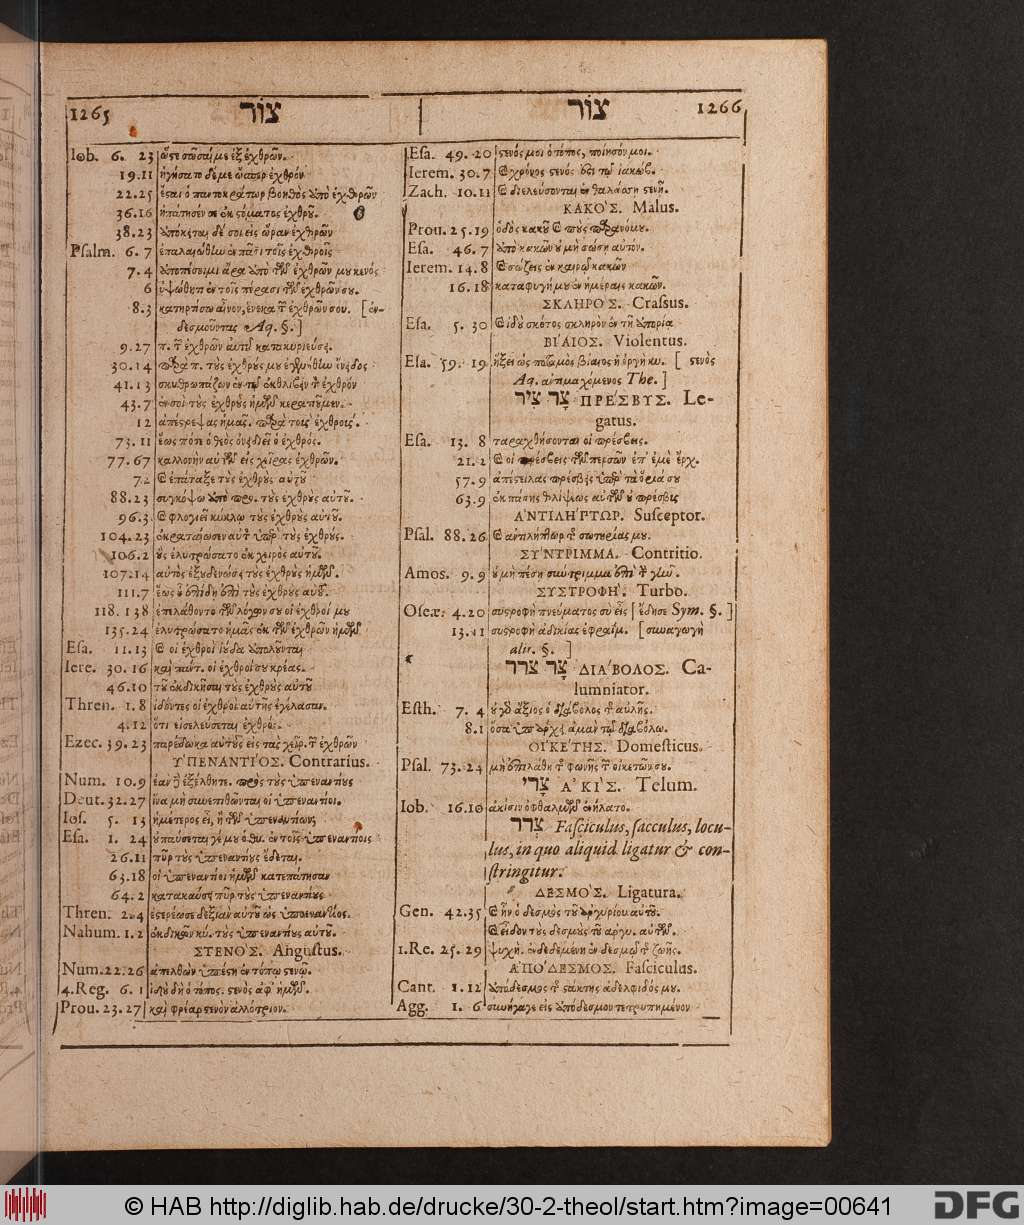 1265 צור
Iob. 6. 23 ὥστε σῶσαί με ἐξ ἐχθρῶν.
19.11 ἡγήσατο δέ με ὥσπερ ἐχθρόν
22.25 ἔσται ὁ παντοκράτωρ βοηθὸς ἀπὸ ἐχθρῶν
36.16 ἠπάτησέν σε ἐκ στόματος ἐχθροῦ.
38.23 ἀπόκειται δέ σοι εἰς ὥραν ἐχθρῶν
Psalm. 6. 7 ἐπαλαιώθην ἐν πᾶσι τοῖς ἐχθροῖς
7. 4 ἀποπέσοιμι ἄρα ἀπὸ τῶν ἐχθρῶν μου κενός
6 ὑψώθητι ἐν τοῖς πέρασι τῶν ἐχθρῶν σου.
8.3 κατηρτίσω αἶνον, ἕνεκα τῶν ἐχθρῶν σου. [ ἐν-
δεσμοῦντας Aq. §. ]
9.27 π. τῶν ἐχθρῶν αὐτοῦ κατακυριεύσει.
30.14 παρὰ π. τοὺς ἐχθρούς μου ἐγενήθην ὄνειδος
41.13 σκυθρωπάζων ἐν τῷ ἐκθλίβειν τὸν ἐχθρόν
43.7 ἐν σοὶ τοὺς ἐχθροὺς ἡμῶν κερατιοῦμεν.
12 ἀπέστρεψας ἡμᾶς. παρὰ τοὺς ἐχθρούς.
73. 11 ἕως πότε ὁ θεὸς ὀνειδιεῖ ὁ ἐχθρός.
77. 67 καλλονὴν αὐτῶν εἰς χεῖρας ἐχθρῶν.
72 καὶ ἐπάταξε τοὺς ἐχθροὺς αὐτοῦ
88.23 συγκόψω ἀπὸ προς. τοὺς ἐχθροὺς αὐτοῦ.
96.3 καὶ φλογιεῖ κύκλῳ τοὺς ἐχθροὺς αὐτοῦ.
104.23 ἐκραταίωσεν αὐτὸν ὑπὲρ τοὺς ἐχθρούς.
106.2 οὓς ἐλυτρώσατο ἐκ χειρὸς αὐτοῦ.
107.14 αὐτὸς ἐξουδενώσει τοὺς ἐχθροὺς ἡμῶν.
111.7 ἕως οὗ ἐπίδῃ ἐπὶ τοὺς ἐχθροὺς αὐτοῦ.
118. 138 ἐπελάθοντο τῶν λόγων σου οἱ ἐχθροί μου
135.24 ἐλυτρώσατο ἡμᾶς ἐκ τῶν ἐχθρῶν ἡμῶν
Esa. 11.13 καὶ οἱ ἐχθροὶ ἰούδα ἀπολοῦνται
Iere. 30. 16 καὶ πάντ. οἱ ἐχθροί σου κρέας.
46.10 τοῦ ἐκδικῆσαι τοὺς ἐχθροὺς αὐτοῦ
Thren. 1. 8 ἰδόντες οἱ ἐχθροὶ αὐτῆς ἐγέλασαν.
4.12 ὅτι εἰσελεύσεται ἐχθρός.
Ezec. 39. 23 παρέδωκα αὐτοὺς εἰς τὰς χεῖρ. τῶν ἐχθρῶν
ΥΠΕΝΑΝΤΙΌΣ. Contrarius.
Num. 10.9 ἐὰν δὲ ἐξέλθητε. πρὸς τοὺς ὑπεναντίους
Deut. 32. 27 ἵνα μὴ συνεπιθῶνται οἱ ὑπεναντίοι.
Ios. 5. 13 ἡμέτερος εἶ, ἢ τῶν ὑπεναντίων;
Esa. 1. 24 οὐ παύσεται γέ μου ὁ θυ. ἐν τοῖς ὑπεναντίοις
26.11 πῦρ τοὺς ὑπεναντίους ἔδεται.
63.18 οἱ ὑπεναντίοι ἡμῶν κατεπάτησαν
64.2 κατακαύσει πῦρ τοὺς ὑπεναντίους
Thren. 2.4 ἐστερέωσε δεξιὰν αὐτοῦ ὡς ὑπεναντίος.
Nahum. 1.2 ἐκδικῶν κύ. τοὺς ὑπεναντίους αὐτοῦ.
ΣΤΕΝΌΣ. Angustus.
Num. 22.26 ἀπελθὼν ὑπέστη ἐν τόπῳ στενῷ.
4. Reg. 6. 1 ἰδοὺ δὴ ὁ τόπος. στενὸς ἀφ᾽ ἡμῶν.
Prou. 23. 27 καὶ φρέαρ στενὸν ἀλλότριον.
צור 1266
Esa. 49. 20 στενός μοι ὁ τόπος, ποίησόν μοι.
Ierem. 30. 7 καὶ χρόνος στενός ἐστι τῷ ἰακώβ.
Zach. 10.11 καὶ διελεύσονται ἐν θαλάσσῃ στενῇ.
ΚΑΚΌΣ. Malus.
Prou. 25. 19 ὁδὸς κακοῦ καὶ ποὺς παρανόμου.
Esa. 46. 7 ἀπὸ κακῶν οὐ μὴ σώσῃ αὐτόν.
Ierem. 14. 8 καὶ σώζεις ἐν καιρῷ κακῶν
16. 18 καταφυγή μου ἐν ἡμέραις κακῶν.
ΣΚΛΗΡΌΣ. Crassus.
Esa. 5. 30 καὶ ἰδοὺ σκότος σκληρὸν ἐν τῇ ἀπορίᾳ
ΒΊΑΙΟΣ. Violentus.
Esa. 59. 19 ἥξει ὡς ποταμὸς βίαιος ἡ ὀργὴ κυ. [ στενὸς
Aq. αἱμασσόμενος The. ]
צָר צִיר ΠΡΈΣΒΥΣ. Le-
gatus.
Esa. 13. 8 ταραχθήσονται οἱ πρέσβεις.
21. 2 καὶ οἱ πρέσβεις τῶν περσῶν ἐπ᾽ ἐμὲ ἔρχ.
57. 9 ἀπέστειλας πρέσβεις ὑπὲρ τὰ ὅριά σου
63.9 ἐκ πάσης θλίψεως αὐτῶν οὐ πρέσβις
ΑΝΤΙΛΉΠΤΩΡ. Susceptor.
Psal. 88. 26 καὶ ἀντιλήπτωρ τῆς σωτηρίας μου.
ΣΎΝΤΡΙΜΜΑ. Contritio.
Amos. 9. 9 οὐ μὴ πέσῃ σύντριμμα ἐπὶ τὴν γῆν.
ΣΥΣΤΡΟΦΉ. Turbo.
Oseæ. 4. 20 συστροφὴ πνεύματος σὺ εἶς [ ἔδησε Sym. §. ]
13. 11 συστροφὴ ἀδικίας ἐφραίμ. [ συναγωγὴ
alir. §. ]
צָר צרר ΔΙΆΒΟΛΟΣ. Ca-
lumniator.
Esth. 7. 4 οὐ γὰρ ἄξιος ὁ διάβολος τῆς αὐλῆς.
8.1 ὅσα ὑπῆρχε ἀμὰν τῷ διαβόλῳ.
ΟΙΚΈΤΗΣ. Domesticus.
Psal. 73. 24 μὴ ἐπιλάθῃ τῆς φωνῆς τῶν οἰκετῶν σου.
צָרִי ΑΚΊΣ. Telum.
Iob. 16.10 ἀκίσιν ὀφθαλμῶν ἐνήλατο.
צְרֹר Fasciculus, sacculus, locu-
lus, in quo aliquid ligatur & con-
stringitur.
ΔΕΣΜΌΣ. Ligatura.
Gen. 42.35 καὶ ἦν ὁ δεσμὸς τοῦ ἀργυρίου αὐτοῦ.
καὶ εἶδον τοὺς δεσμοὺς τοῦ ἀργυ. αὐτῶν.
1. Re. 25. 29 ψυχὴ. ἐνδεδεμένη ἐν δεσμῷ τῆς ζωῆς.
ΑΠΌΔΕΣΜΟΣ. Fasciculus.
Cant. 1. 12 ἀπόδεσμος τῆς στακτῆς ἀδελφιδός μου.
Agg. 1. 6 συνήγαγε εἰς ἀπόδεσμον τετρυπημένον
© HAB http://diglib.hab.de/drucke/30-2-theol/start.htm?image=00641
DFG